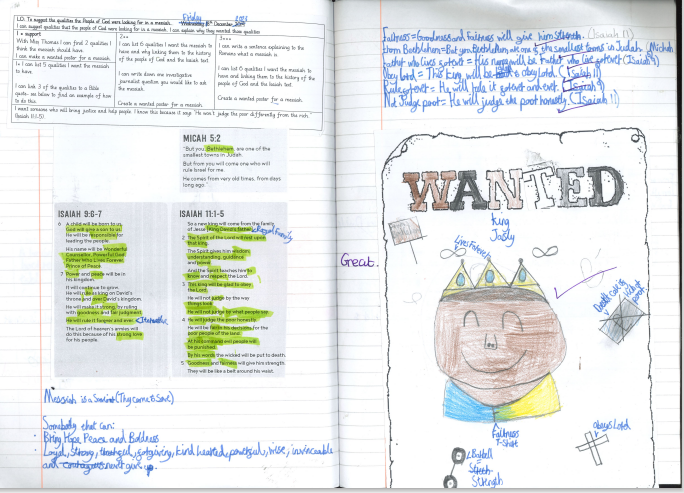 Friday
LO: To suggest the qualities the People of God were looking for in a messiah. Wednesday 15th December,
I can suggest qualities that the people of God were looking for in a messiah. I can explain why they wanted those qualities.
1 + support
With Miss Thomas I can find 2 qualities I think the messiah should have.
I can make a wanted poster for a messiah.
1+ I can list 5 qualities I want the messiah to have.
I can link 3 of the qualities to a Bible quote- see below to find an example of how to do this.
2++
I can list 6 qualities I want the messiah to have and why linking them to the history of the people of God and the Isaiah text.
I can write down one investigative journalist question you would like to ask the messiah.
Created a wanted poster for a messiah.
3+++
I can write a sentence explaining to the Romans what a messiah is.
I can list 6 qualities I want the messiah to have and linking them to the history of the people of God and the Isaiah text.
Create a wanted poster for a messiah.
I want someone who will bring justice and help people. I know this because it says 'He won't judge the poor differently from the rich.'
(Isaiah 11:1-5).
MICAH 5:2
"But you, Bethlehem, are one of the
smallest towns in Judah.
But from you will come one who will
rule Israel for me.
He comes from very old times, from days
long ago."
ISAIAH 9:6-7
6 A child will be born to us.
God will give a son to us.
He will be responsible for
leading the people.
His name will be Wonderful
Counselor, Powerful God,
Father Who Lives Forever,
Prince of Peace.
7 Power and peace will be in
his kingdom.
It will continue to grow.
He will rule as king on David's
throne and over David's kingdom.
He will make it strong by ruling
with goodness and fair judgment.
He will rule it forever and ever.
The Lord of heaven's armies will
do this because of his strong love
for his people.
ISAIAH 11:1-5
So a new king will come from the family
of Jesse [King David's father]. Royal Family
2 The Spirit of the Lord will rest upon
that king.
The Spirit gives him wisdom,
understanding, guidance
and power.
And the Spirit teaches him to
know and respect the Lord.
3 This king will be glad to obey
the Lord.
He will not judge by the way
things look.
He will not judge by what people say.
4 He will judge the poor honestly.
He will be fair in his decisions for the
poor people of the land.
At his command evil people will
be punished.
By his words the wicked will be put to death.
5 Goodness and fairness will give him strength.
They will be like a belt around his waist.
Messiah is a Saviour (They came to Save)
Somebody that can:
Bring Hope Peace and Boldness
Loyal, Strong, thankful, forgiving, kind hearted, powerful, wise, invinceable
and never give up.
Fairness = Goodness and Fairness will give him Strength. (Isaiah 11)
From Bethlehem = But you Bethlehem are one of the smallest towns in Judah. (Micah
Father who lives forever = His name will be Father who lives forever (Isaiah 9)
Obey lord = This king will be glad to obey lord. (Isaiah 11)
Rule forever = He will rule it forever and ever. (Isaiah 9)
Not Judge poor = He will judge the poor honestly. (Isaiah 11)
WANTED
King
Lives Forever
Great.
Fairness
T-Shirt
obeys Lord
Strength